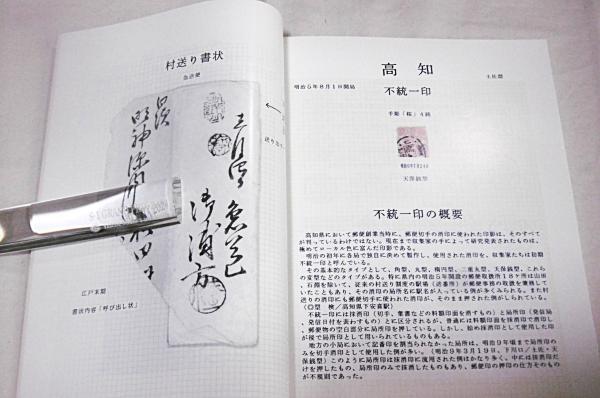 村送り書状
急送便
江戸末期
書状内容「呼び出し状」
高知
土佐国
明治5年8月1日開局
不統一印
手彫「桜」4銭
天保銭型
不統一印の概要
高知県において郵便創業当時に、郵便切手の消印に使われた印影は、そのすべて
が判っているわけではない。現在まで収集家の手によって研究発表されたものは、
極めてローカル色に富んだ印影である。
明治の初年に各局で独自に決めて製作し、使用された消印を、収集家たちは初期
不統一印と呼んでいる。
その基本的なタイプとして、角型、丸型、楕円型、二重丸型、天保銭型、これら
の変型などのタイプがある。特に高知の明治5年開設の郵便取扱所18ヶ所は山田
たこともあり、その消印の局所名に駅名が入っている例が多くみられる。また村
送りの消印にも郵便切手に使われた消印が、そのまま押された例がしられている。
不統一印には抹消印(切手、葉書などの料額印面を消すもの)と局所印(発信局
、発信日付を表わすもの)とに区分されるが、普通には料額印面を抹消印で消印し
、郵便物の空白部分に局所印を押している。しかし、始め抹消印として使用した印
が後で局所印として用いられているものもある。
地方の小局において記番印を割当られなかった局所は、明治9年頃まで局所印の
みを切手消印として使用した例が多い。(明治9年3月19日、下川口/土佐・天
保銭型)このように局所印は抹消印に流用された例はかなり多く、中には抹消印だ
けを押したもの、局所印のみで抹消したものもあり、郵便印の押印の仕方そのもの
が不規則であった。